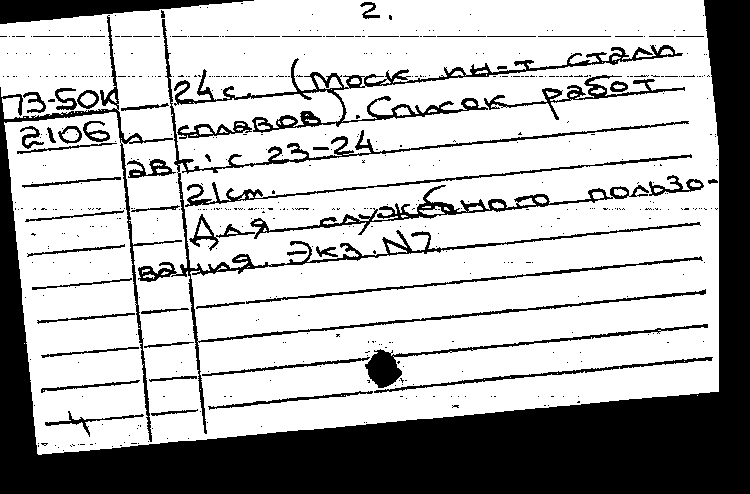 2.
73-50К 24 с. (Моск ин-т стали
2106 и сплавов). Список работ
авт.: с 23-24
21 cm.
Для служебного пользо-
вания. Экз. N2
4